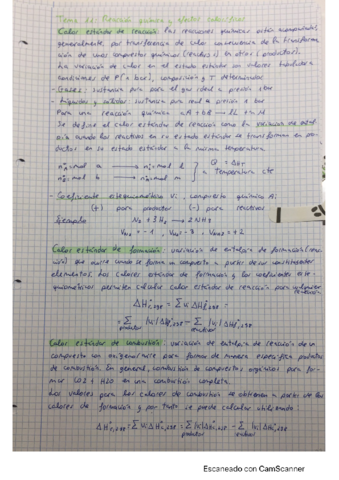 Tema 11: Reacción química y efectos caloríficos
Calor estándar de reacción: las reacciones químicas están acompañadas
generalmente, por transferencia de calor consecuencia de la transforma
ción de unos compuestos químicos (reactivos) en otros (productos).
La variación de calor en el estado estándar son valores tabulados a
condiciones de P (1 bar), composición y T determinados
- Gases: sustancia pura para el gas ideal a presión 1 bar
- Líquidos y sólidos: sustancia pura real a presión 1 bar
Para una reacción química aA + bB → lL + mM
Se define el calor estándar de reacción como la variación de entalpía
cuando los reactivos en su estado estándar se transforman en pro-
ductos en su estado estándar a la misma temperatura.
Q = ΔH
a Temperatura cte
- Coeficiente estequiométrico Vi, compuesto químico Ai
(+) para productos (-) para reactivos
Ejemplo N2 + 3H2 → 2NH3
VN2 = -1, VH2 = -3, VNH3 = +2
Calor estándar de formación: variación de entalpía de formación (reac
ción) que resulta cuando se forma un compuesto a partir de sus constituyentes
elementos. Los calores estándar de formación y los coeficientes este-
quiométricos permiten calcular calor estándar de reacción para cualquier
reacción
Calor estándar de combustión: variación de entalpía de reacción de un
compuesto con oxígeno para formar de manera específica productos
de combustión. En general, combustión de compuestos orgánicos para for-
mar CO2 + H2O en una combustión completa.
Los valores para los calores de combustión se obtienen a partir de los
calores de formación y por tanto se puede calcular utilizando:
Escaneado con CamScanner